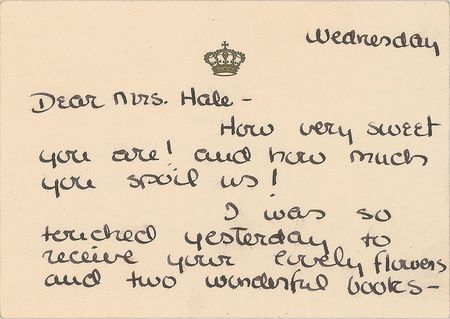 Wednesday
Dear Mrs. Hale -
How very sweet
you are! and how much
you spoil us!
I was so
touched yesterday to
receive your lovely flowers
and two wonderful books-